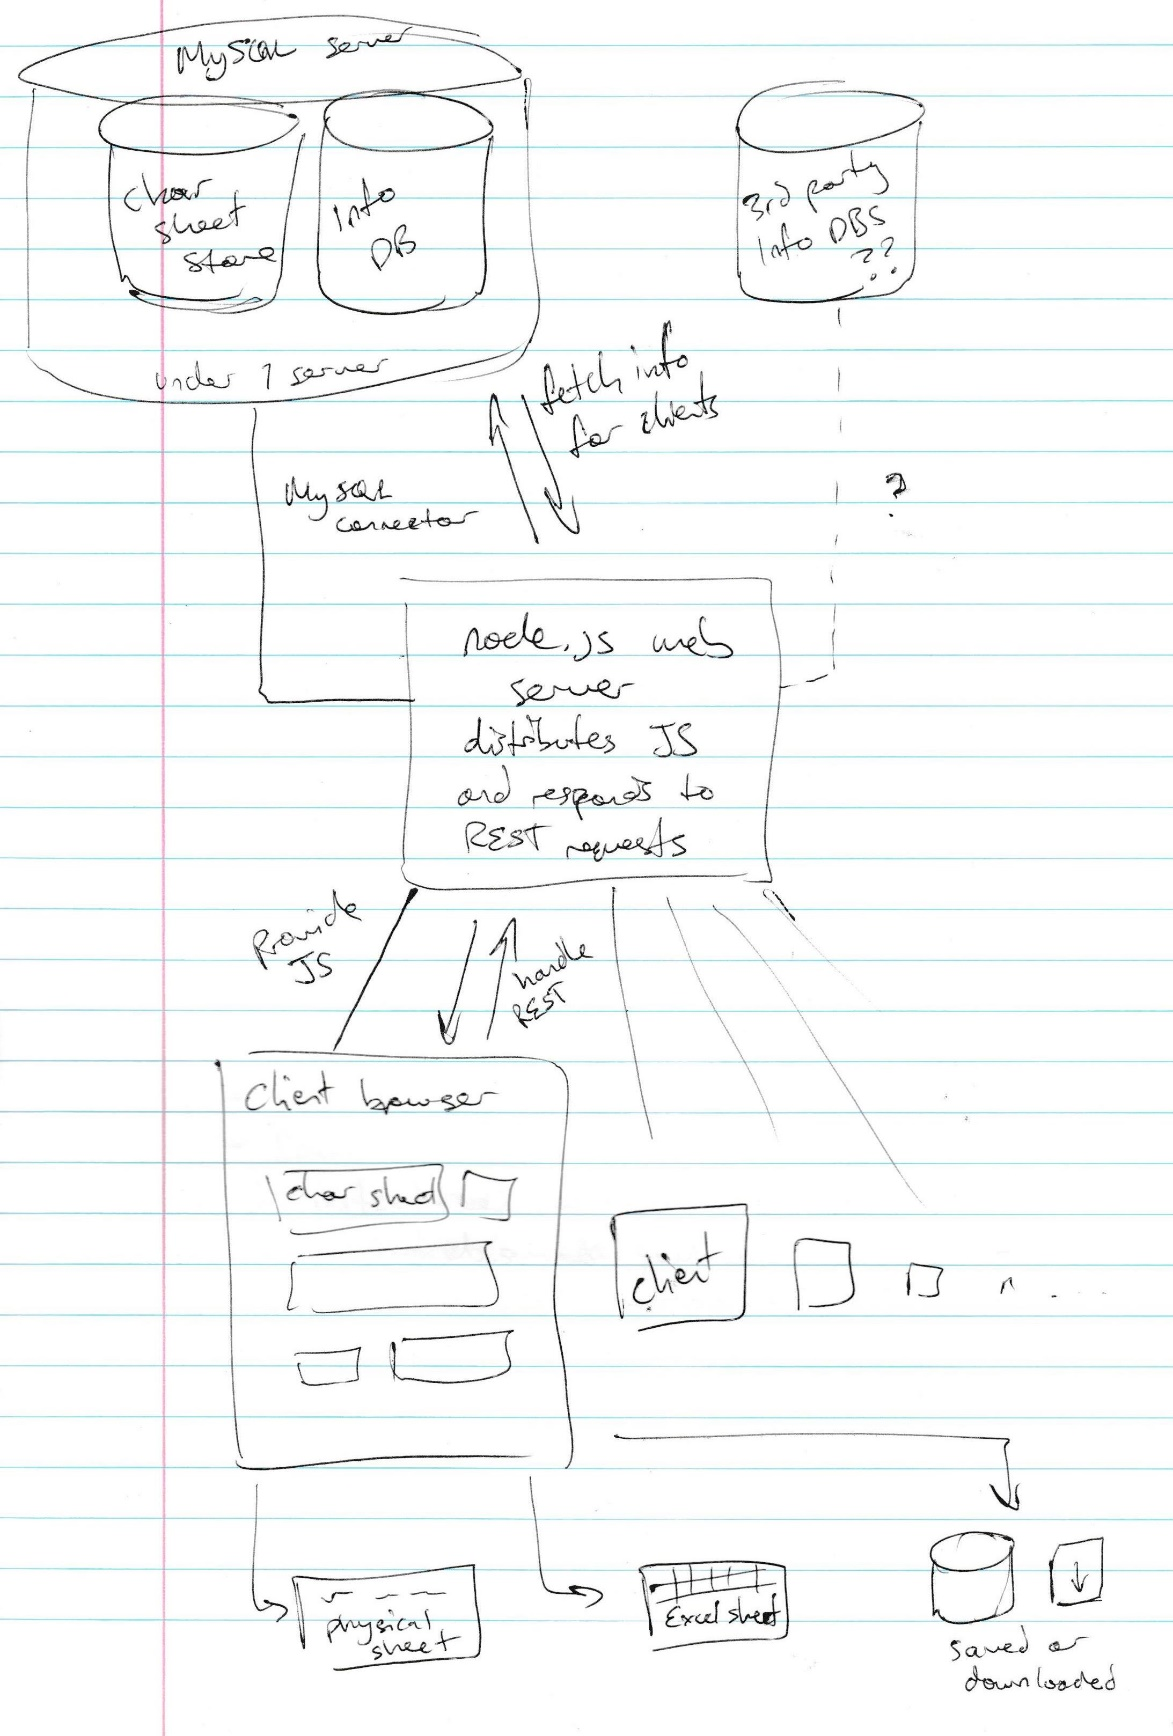 MySQL server
char
sheet
store
Info
DB
under 1 server
3rd party
Info DBs
??
fetch info
for clients
MySQL
connector
?
node.js web
server
distributes JS
and responds to
REST requests
Provide
JS
handle
REST
Client browser
char sheet
client
physical
sheet
Excel sheet
saved or
downloaded